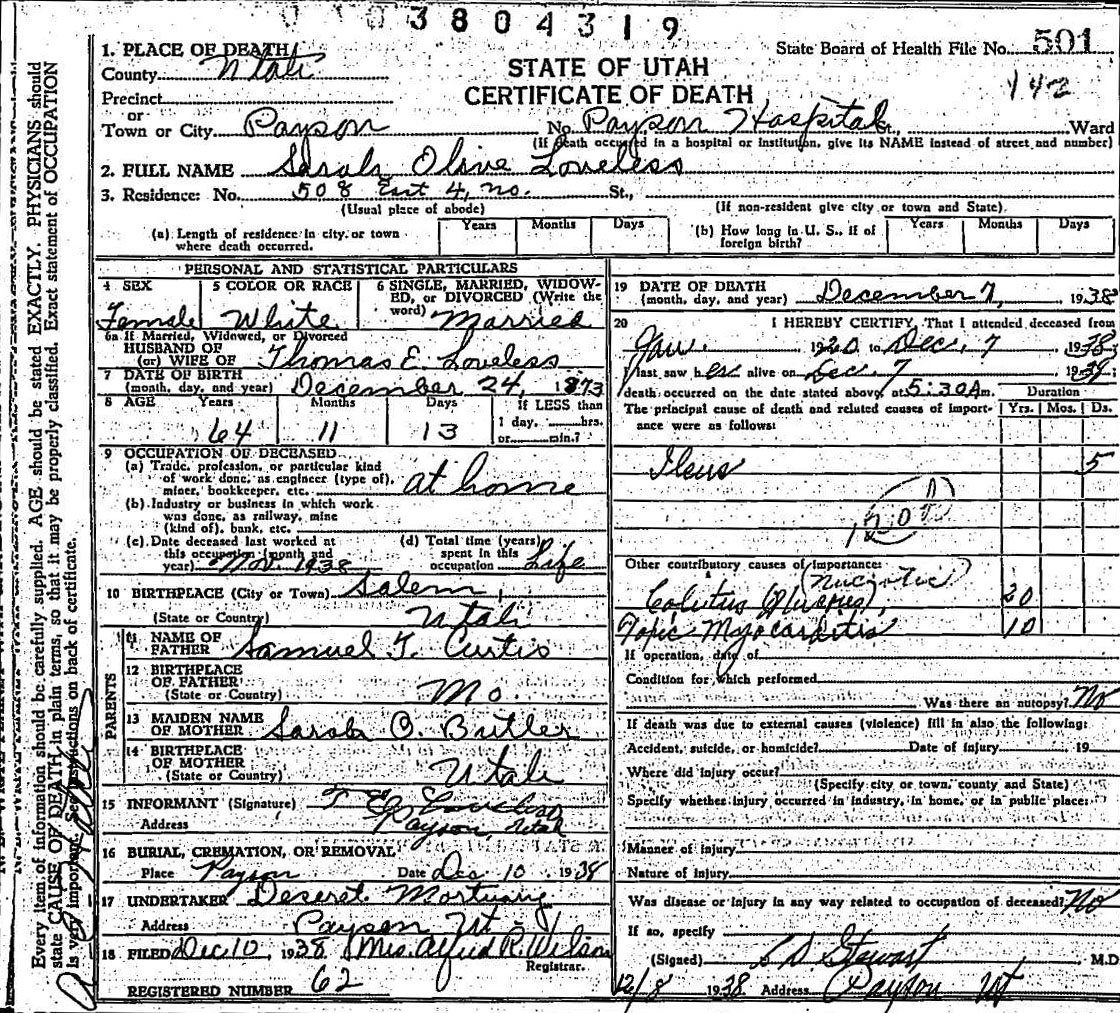 3804319
State Board of Health File No. 501
142
STATE OF UTAH
CERTIFICATE OF DEATH
1. PLACE OF DEATH
County Utah
Precinct
or
Town or City Payson No. Payson Hospital St., Ward
(If death occurred in a hospital or institution, give its NAME instead of street and number)
2. FULL NAME Sarah Olive Loveless
3. Residence: No. 508 East 4, no. St.,
(Usual place of abode) (If non-resident give city or town and State)
(a) Length of residence in city or town where death occurred. Years Months Days
(b) How long in U. S., if of foreign birth? Years Months Days
PERSONAL AND STATISTICAL PARTICULARS
4 SEX Female
5 COLOR OR RACE White
6 SINGLE, MARRIED, WIDOWED, or DIVORCED (Write the word) Married
6a If Married, Widowed, or Divorced
HUSBAND OF
(or) WIFE OF Thomas E. Loveless
7 DATE OF BIRTH
(month, day, and year) December 24, 1873
8 AGE Years Months Days If LESS than
64 11 13 1 day, hrs.
or min.?
9 OCCUPATION OF DECEASED
(a) Trade, profession, or particular kind
of work done, as engineer (type of),
miner, bookkeeper, etc. at home
(b) Industry or business in which work
was done, as railway, mine
(kind of), bank, etc.
(c) Date deceased last worked at
this occupation (month and
year) Nov. 1938
(d) Total time (years)
spent in this
occupation Life
10 BIRTHPLACE (City or Town) Salem,
(State or Country) Utah
PARENTS
11 NAME OF
FATHER Samuel T. Curtis
12 BIRTHPLACE
OF FATHER
(State or Country) Mo.
13 MAIDEN NAME
OF MOTHER Sarah O. Butler
14 BIRTHPLACE
OF MOTHER
(State or Country) Utah
15 INFORMANT (Signature) T E Loveless
Address Payson, Utah
16 BURIAL, CREMATION, OR REMOVAL
Place Payson Date Dec 10, 1938
17 UNDERTAKER Deseret Mortuary
Address Payson Ut
18 FILED Dec 10, 1938 Mrs. Alfred R. Wilson
Registrar.
REGISTERED NUMBER 62
19 DATE OF DEATH
(month, day, and year) December 7, 1938
20 I HEREBY CERTIFY, That I attended deceased from
Jan. 1920 to Dec. 7 1938
I last saw her alive on Dec. 7 1938;
death occurred on the date stated above, at 5:30 A m. Duration
The principal cause of death and related causes of importance were as follows: Yrs. Mos. Ds.
Ileus 5
Other contributory causes of importance:
Colitus 20
Myocarditis 10
If operation, date of
Condition for which performed
Was there an autopsy? No
If death was due to external causes (violence) fill in also the following:
Accident, suicide, or homicide? Date of injury 19
Where did injury occur?
(Specify city or town, county and State)
Specify whether injury occurred in industry, in home, or in public place:
Manner of injury
Nature of injury
Was disease or injury in any way related to occupation of deceased? No
If so, specify
(Signed) Stewart M.D
12/8 1938 Address Payson Ut
Every item of information should be carefully supplied. AGE should be stated EXACTLY. PHYSICIANS should
state CAUSE OF DEATH in plain terms, so that it may be properly classified. Exact statement of OCCUPATION
is very important. See instructions on back of certificate.